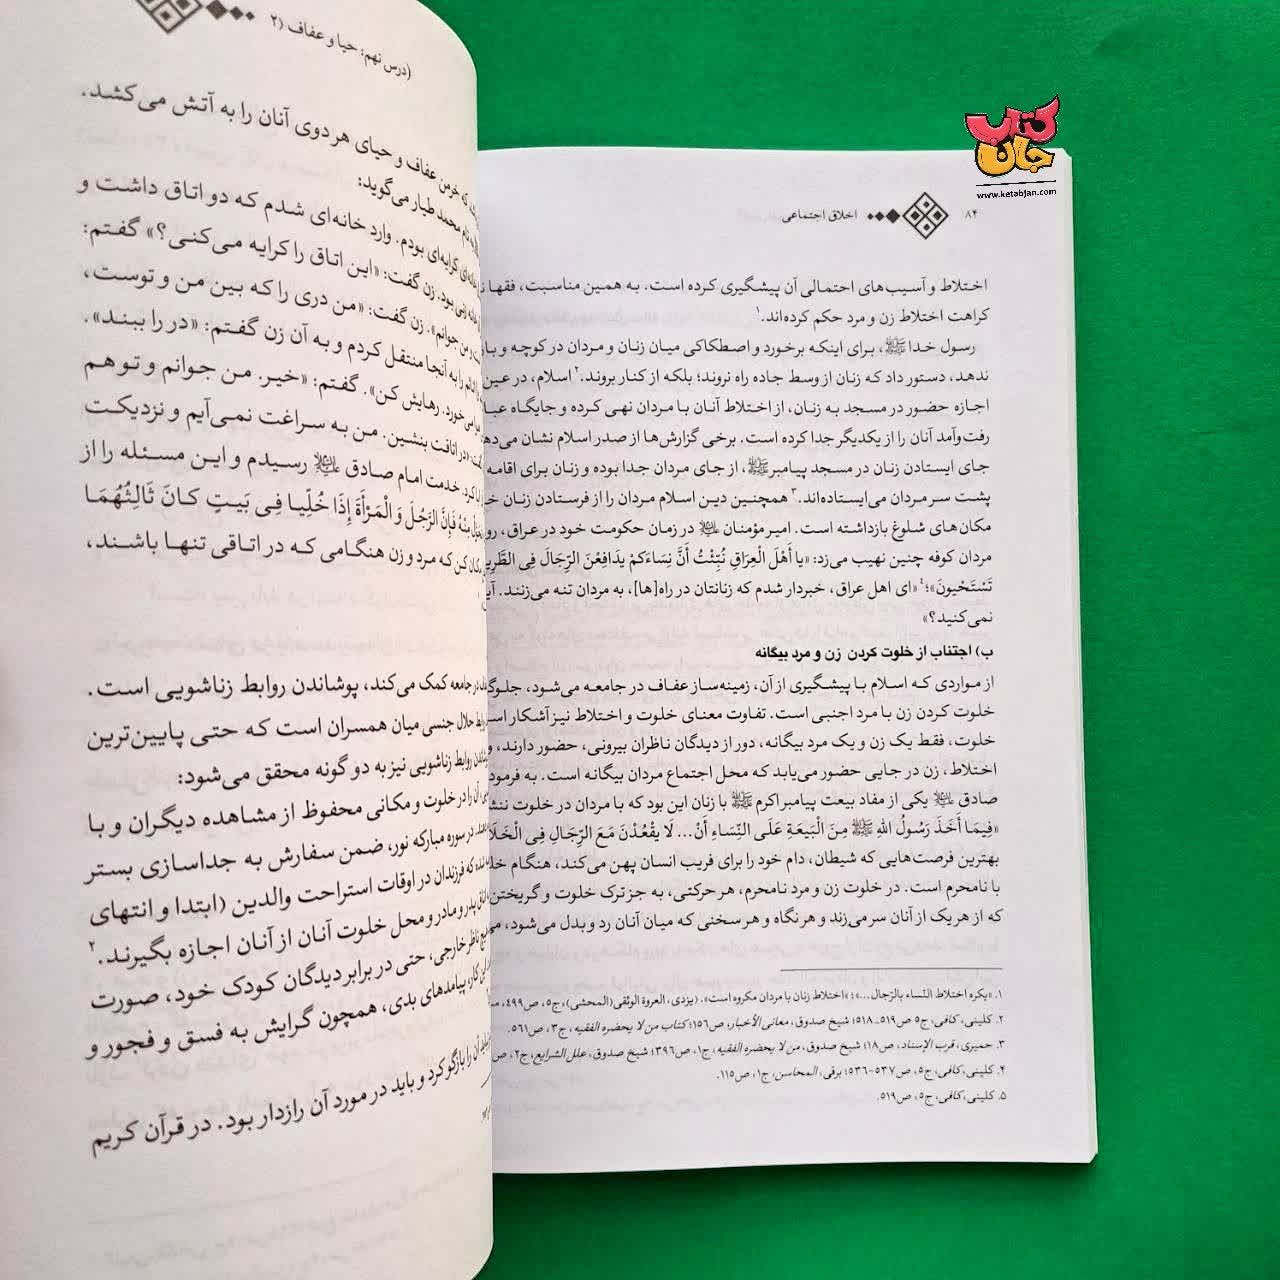 کتاب جان
www.ketabjan.com
۸۴ اخلاق اجتماعی
اختلاط و آسیب‌های احتمالی آن پیشگیری کرده است. به همین مناسبت، فقها
کراهت اختلاط زن و مرد حکم کرده‌اند.۱
رسول خدا ﷺ، برای اینکه برخورد و اصطکاکی میان زنان و مردان در کوچه و
ندهد، دستور داد که زنان از وسط جاده راه نروند؛ بلکه از کنار بروند.۲ اسلام، در عین
اجازه حضور در مسجد به زنان، از اختلاط آنان با مردان نهی کرده و جایگاه
رفت‌وآمد آنان را از یکدیگر جدا کرده است. برخی گزارش‌ها از صدر اسلام نشان
جای ایستادن زنان در مسجد پیامبر ﷺ، از جای مردان جدا بوده و زنان برای اقامه
پشت سر مردان می‌ایستاده‌اند.۳ همچنین دین اسلام مردان را از فرستادن زنان
مکان‌های شلوغ بازداشته است. امیرمؤمنان در زمان حکومت خود در عراق،
مردان کوفه چنین نهیب می‌زد: «یا أَهْلَ الْعِرَاقِ نُبِّئْتُ أَنَّ نِسَاءَکُمْ یدَافِعْنَ الرِّجَالَ فِی
تَسْتَحْیونَ»؛۴ «ای اهل عراق، خبردار شدم که زنانتان در راه[ها]، به مردان تنه می‌زنند.
نمی‌کنید؟»
ب) اجتناب از خلوت کردن زن و مرد بیگانه
از مواردی که اسلام با پیشگیری از آن، زمینه‌ساز عفاف در جامعه می‌شود،
خلوت کردن زن با مرد اجنبی است. تفاوت معنای خلوت و اختلاط نیز آشکار
خلوت، فقط یک زن و یک مرد بیگانه، دور از دیدگان ناظران بیرونی، حضور دارند،
اختلاط، زن در جایی حضور می‌یابد که محل اجتماع مردان بیگانه است. به
صادق یکی از مفاد بیعت پیامبر اکرم ﷺ با زنان این بود که با مردان در خلوت
«فِیمَا أَخَذَ رَسُولُ اللهِ ﷺ مِنَ الْبَیعَةِ عَلَی النِّسَاءِ أَنْ... لَا یقْعُدْنَ مَعَ الرِّجَالِ فِی
بهترین فرصت‌هایی که شیطان، دام خود را برای فریب انسان پهن می‌کند، هنگام
با نامحرم است. در خلوت زن و مرد نامحرم، هر حرکتی، به جز ترک خلوت و گریختن
که از هر یک از آنان سر می‌زند و هر نگاه و هر سخنی که میان آنان رد و بدل می‌شود،
۱. «یکره اختلاط النّساء بالرّجال...»؛ «اختلاط زنان با مردان مکروه است». (یزدی، العروة الوثقی (المحشی)، ج۵، ص۴۹۹،
۲. کلینی، کافی، ج۵ ص۵۱۹ـ۵۱۸؛ شیخ صدوق، معانی الأخبار، ص۱۵۶؛ کتاب من لا یحضره الفقیه، ج۳، ص۵۶۱.
۳. حمیری، قرب الإسناد، ص۱۸؛ شیخ صدوق، من لا یحضره الفقیه، ج۱، ص۳۹۶؛ شیخ صدوق، علل الشرایع، ج۲،
۴. کلینی، کافی، ج۵، ص۵۳۷-۵۳۶؛ برقی، المحاسن، ج۱، ص۱۱۵.
۵. کلینی، کافی، ج۵، ص۵۱۹.
(درس نهم: حیا و عفاف (۲
که خرمن عفاف و حیای هر دوی آنان را به آتش می‌کشد.
نام محمد طیار می‌گوید:
کرایه‌ای بودم. وارد خانه‌ای شدم که دو اتاق داشت و
زنی بود. زن گفت: «این اتاق را کرایه می‌کنی؟» گفتم:
و من جوانم». زن گفت: «من دری را که بین من و توست،
را به آنجا منتقل کردم و به آن زن گفتم: «در را ببند».
می‌خورد. رهایش کن». گفتم: «خیر. من جوانم و تو هم
در اتاقت بنشین. من به سراغت نمی‌آیم و نزدیکت
خدمت امام صادق رسیدم و این مسئله را از
مِنْهُ فَإِنَّ الرَّجُلَ وَ الْمَرْأَةَ إِذَا خُلِّیا فِی بَیتٍ کَانَ ثَالِثُهُمَا
کن که مرد و زن هنگامی که در اتاقی تنها باشند،
در جامعه کمک می‌کند، پوشاندن روابط زناشویی است.
حلال جنسی میان همسران است که حتی پایین‌ترین
روابط زناشویی نیز به دو گونه محقق می‌شود:
آن را در خلوت و مکانی محفوظ از مشاهده دیگران و با
در سوره مبارکه نور، ضمن سفارش به جداسازی بستر
که فرزندان در اوقات استراحت والدین (ابتدا و انتهای
پدر و مادر و محل خلوت آنان از آنان اجازه بگیرند.۲
ناظر خارجی، حتی در برابر دیدگان کودک خود، صورت
کار، پیامدهای بدی، همچون گرایش به فسق و فجور و
آن را بازگو کرد و باید در مورد آن رازدار بود. در قرآن کریم